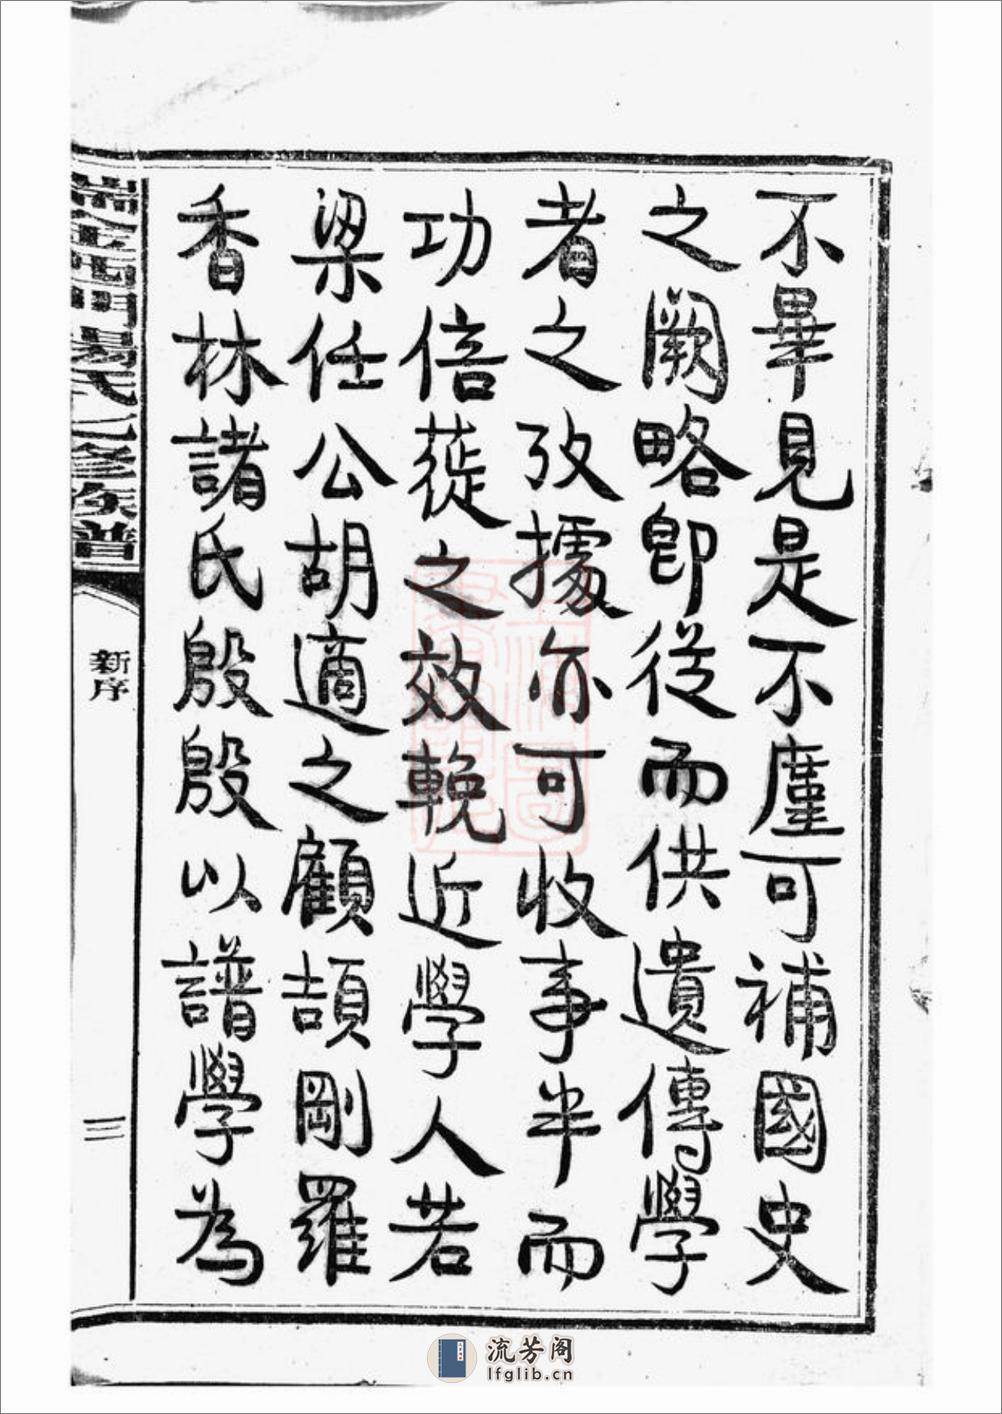 不畢見是不廑可補國史
之闕略即從而供遺傳學
者之攷據亦可收事半而
功倍蓰之效輓近學人若
梁任公胡適之顧頡剛羅
香林諸氏殷殷以譜學為
新序
三
流芳阁
lfglib.cn